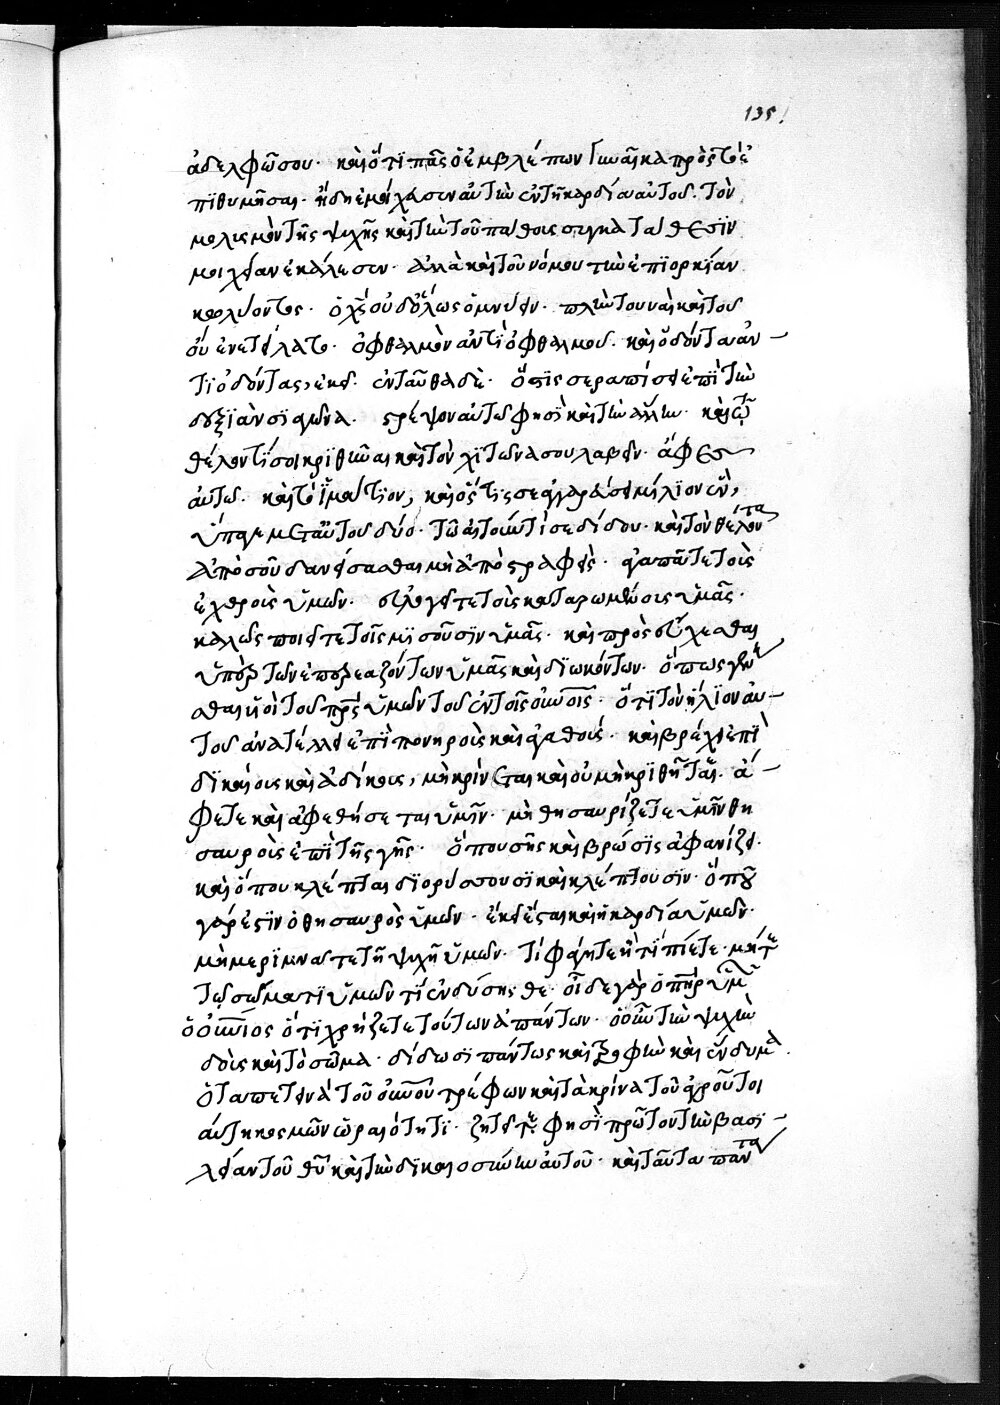 135
ἀδελφῶ σου· καὶ ὅτϊ πᾶς ὁ ἐμβλέπων γυναῖκα πρὸς τὸ ἐ
πϊθυμῆσαι· ἤδη ἐμοίχευσεν αὐτὴν ἐν τῆ καρδία αὐτοῦ. τὸν
μολισμὸν τῆς ψυχῆς καὶ τὴν τοῦ πάθους συγκατάθεσϊν
μοιχείαν ἐκάλεσεν· ἀλλὰ καὶ τοῦ νόμου τὴν ἐπϊορκίαν
κωλύοντος· ὁ χς οὐδ' ὅλως ὀμνύειν· πλὴν τοῦ ναὶ καὶ τοῦ
οὐ ἐνετείλατο· ὀφθαλμὸν ἀντὶ ὀφθαλμοῦ· καὶ ὀδόντα ἀν
τϊ ὀδόντος, ἐκεῖ· ἐνταῦθα δὲ· ὅστις σε ραπίσει ἐπϊ τὴν
δεξϊὰν σϊαγῶνα· στρέψον αὐτῶ φησὶ καὶ τὴν ἄλλην· καὶ τῶ
θέλοντί σοι κρϊθῆναι καὶ τὸν χϊτῶνα σου λαβεῖν· ἄφες
αὐτῶ· καὶ τὸ ἱμάτϊον, καὶ ὅστϊς σε ἀγγαρεύσει μίλϊον ἓν,
ὕπαγε μετ' αὐτοῦ δύο· τῶ αἰτοῦντί σε δίδου· καὶ τὸν θέλοντα
ἀπὸ σοῦ δανείσασθαι μὴ ἀποστραφεὶς· ἀγαπᾶτε τοὺς
ἐχθροὺς ὑμῶν· εὐλογεῖτε τοὺς καταρωμένους ὑμᾶς·
καλῶς ποιεῖτε τοῖς μϊσοῦσϊν ὑμᾶς· καὶ προσεύχεσθαι
ὑπὲρ τῶν ἐπηρεαζόντων ὑμᾶς καὶ δϊωκόντων· ὅπως γένη
σθαι υἱοὶ τοῦ πρς ὑμῶν τοῦ ἐν τοῖς οὐνοῖς· ὅτϊ τὸν ἥλϊον αὐ
τοῦ ἀνατέλλει ἐπὶ πονηροὺς καὶ ἀγαθούς· καὶ βρέχει ἐπϊ
δϊκαίους καὶ ἀδίκους, μὴ κρίνεται καὶ οὐ μὴ κρϊθῆται· ἀ
φετε καὶ ἀφεθήσεται ὑμῖν· μὴ θησαυρίζετε ὑμῖν θη
σαυροὺς ἐπϊ τῆς γῆς· ὅπου σῆς καὶ βρώσϊς ἀφανίζει·
καὶ ὅπου κλέπται δϊορύσσουσϊ καὶ κλέπτουσϊν· ὅπου
γάρ ἐστϊν ὁ θησαυρὸς ὑμῶν· ἐκεῖ ἔσται καὶ ἡ καρδία ὑμῶν·
μὴ μερϊμνᾶτε τῆ ψυχῆ ὑμῶν· τί φάγητε ἢ τί πίετε· μήτε
τῶ σώματϊ ὑμῶν τί ἐνδύσησθε· οἶδε γὰρ ὁ πηρ ὑμῶν
ὁ οὐνιος ὅτϊ χρήζετε τούτων ἁπάντων· ὁ οὖν τὴν ψυχὴν
δοὺς καὶ τὸ σῶμα· δίδωσϊ πάντως καὶ τροφὴν καὶ ἔνδυμα.
ὁ τὰ πετεινὰ τοῦ οὐνοῦ τρέφων καὶ τὰ κρίνα τοῦ ἀγροῦ τοι
αύτη κοσμῶν ὡραιότητϊ· ζητεῖτε φησὶ πρῶτον τὴν βασϊ
λείαν τοῦ θῦ καὶ τὴν δϊκαιοσύνην αὐτοῦ· καὶ ταῦτα πάντα